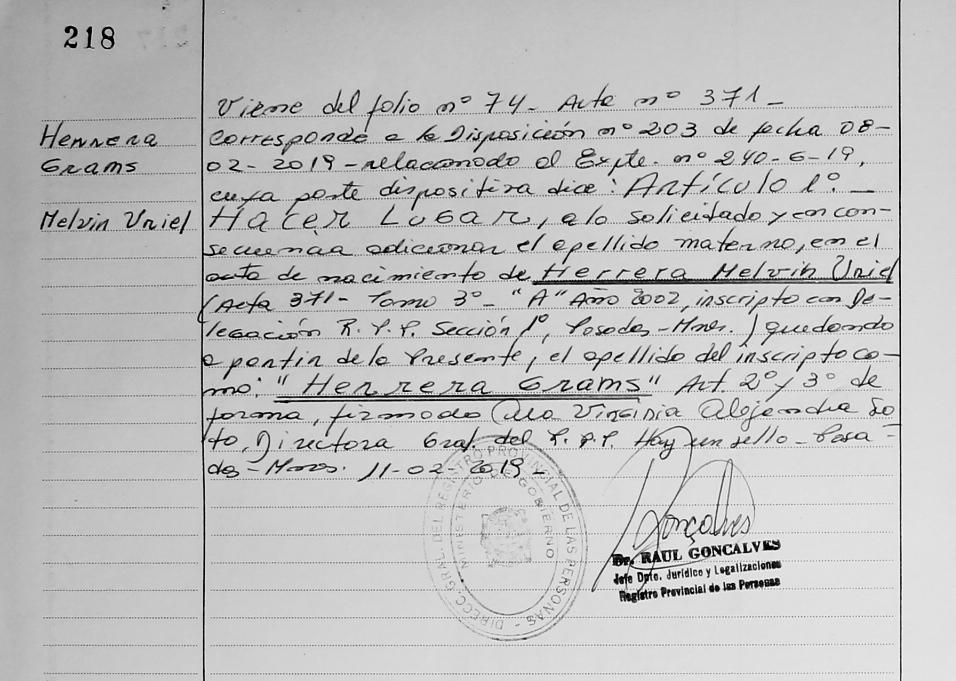 218
Herrera
Grams
Melvin Uriel
Viene del folio nº 74- Acta nº 371-
Corresponde a la Disposición nº 203 de fecha 08-
02-2019-relacionado al Expte. nº 240-6-19,
cuya parte dispositiva dice: Artículo 1º.-
Hacer Lugar, a lo solicitado y en con-
secuencia adicionar el apellido materno, en el
acta de nacimiento de Herrera Melvin Uriel
(Acta 371- Tomo 3º- "A" Año 2002, inscripto en De-
legación R.P.P. Sección 1º, Posadas-Mnes.) quedando
a partir de la presente, el apellido del inscripto co-
mo: "Herrera Grams" Art. 2º y 3º de
forma, firmado Virginia Alejandra So-
to, Directora Gral. del R.P.P. Hay un sello- Posa-
das-Mnes. 11-02-2019-
DIRECC. GRAL. DEL REGISTRO PROVINCIAL DE LAS PERSONAS -
MINISTERIO DE GOBIERNO
Goncalves
Dr. RAUL GONCALVES
Jefe Dpto. Jurídico y Legalizaciones
Registro Provincial de las Personas